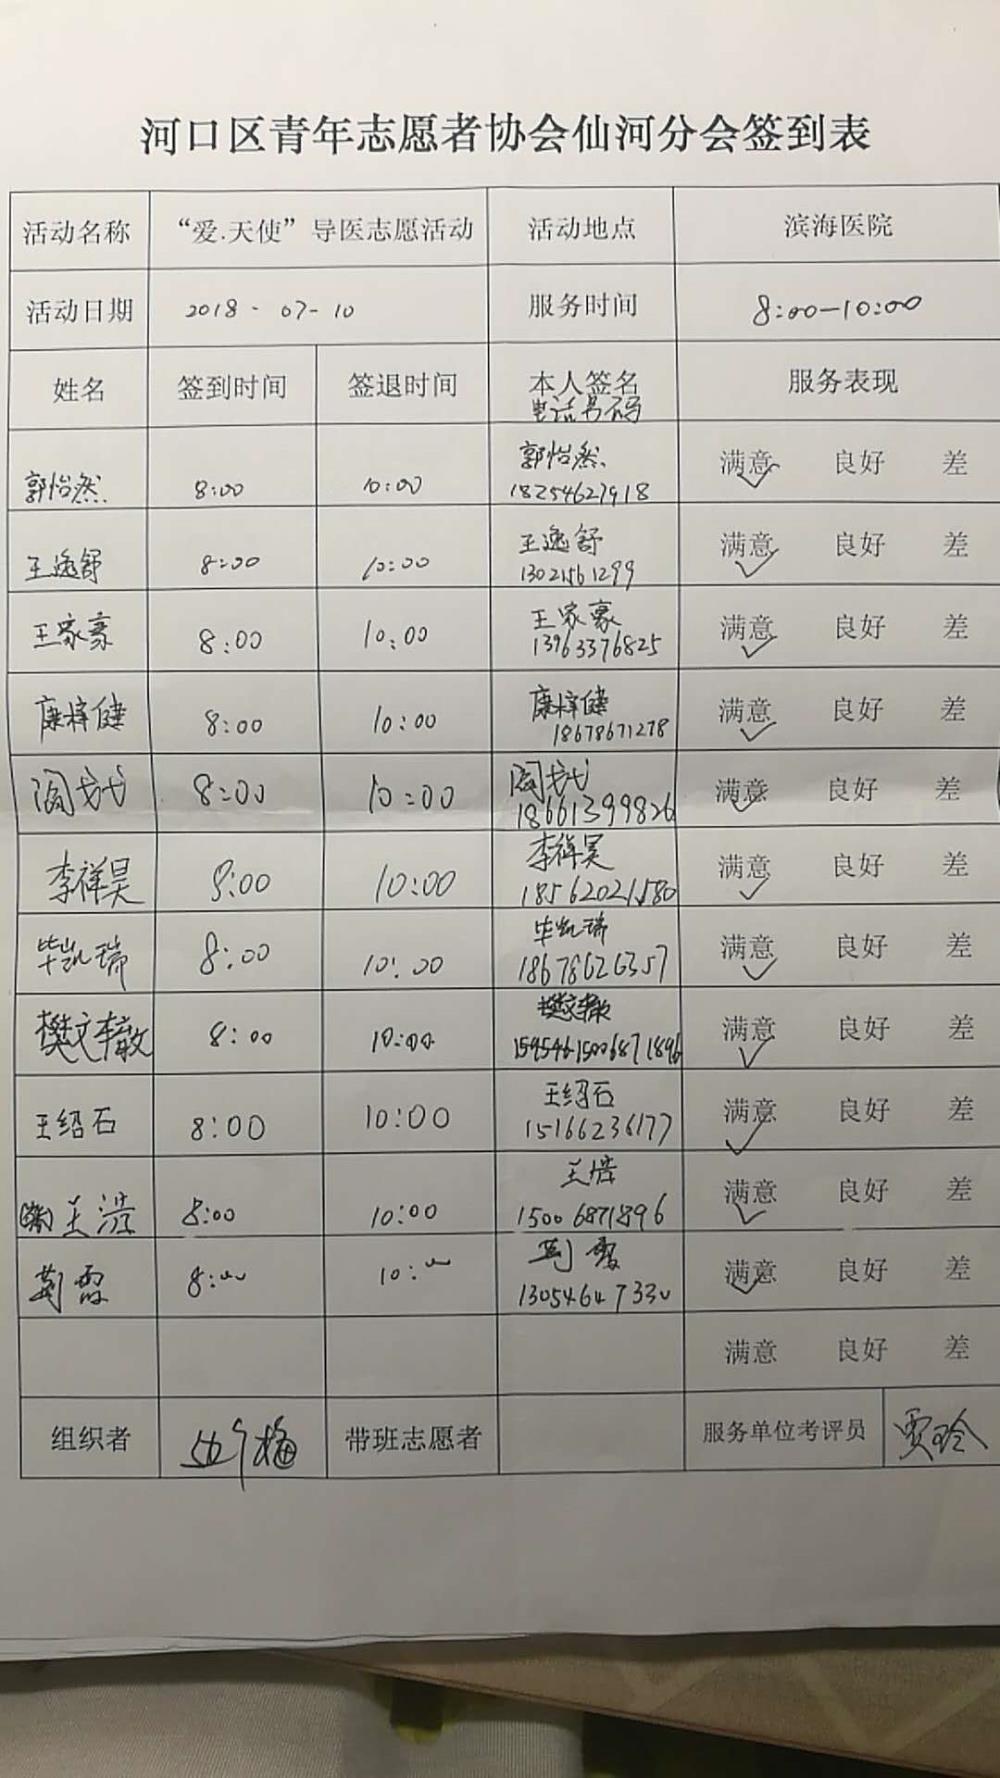 河口区青年志愿者协会仙河分会签到表
活动名称 “爱.天使”导医志愿活动 活动地点 滨海医院
活动日期 2018-07-10 服务时间 8:00—10:00
姓名 签到时间 签退时间 本人签名 服务表现
电话号码
郭怡然 8:00 10:00 郭怡然 满意 良好 差
18254627918
王逸舒 8:00 10:00 王逸舒 满意 良好 差
13021561299
王家豪 8:00 10:00 王家豪 满意 良好 差
13963376825
康梓健 8:00 10:00 康梓健 满意 良好 差
18678671278
8:00 10:00 满意 良好 差
18661399826
李祥昊 8:00 10:00 李祥昊 满意 良好 差
18562021580
毕凯瑞 8:00 10:00 毕凯瑞 满意 良好 差
18678626357
樊文 8:00 10:00 樊文 满意 良好 差
王绍石 8:00 10:00 王绍石 满意 良好 差
15166236177
王浩 8:00 10:00 王浩 满意 良好 差
15006871896
荆雪 8:00 10:00 荆雪 满意 良好 差
13054647330
满意 良好 差
组织者 带班志愿者 服务单位考评员 贾玲